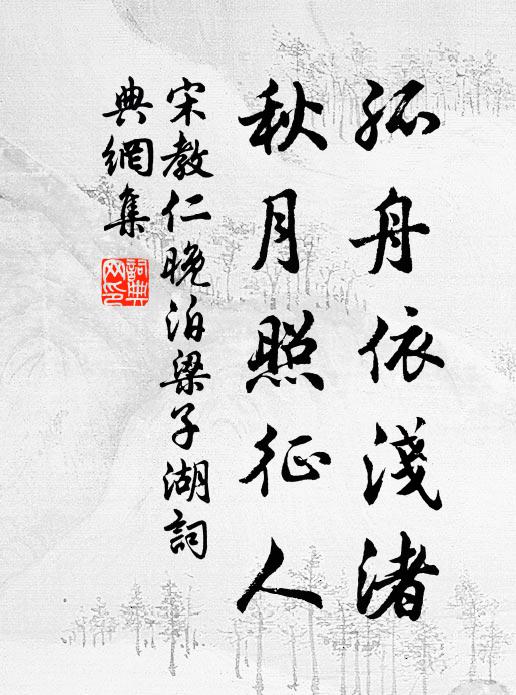 孤舟依淺渚
秋月照征人
宋教仁晚泊梁子湖詞
典網集
詞典
网印